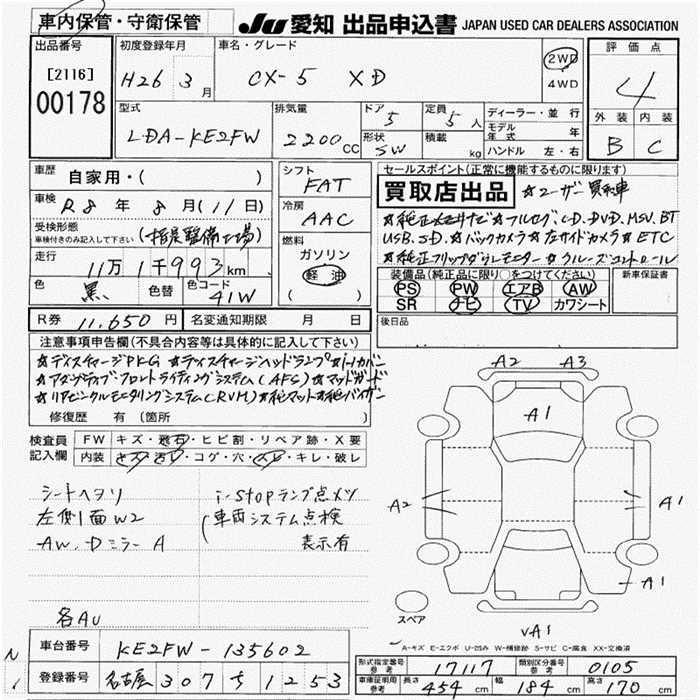 車内保管・守衛保管
JU 愛知 出品申込書 JAPAN USED CAR DEALERS ASSOCIATION
出品番号 [2116] 00178
初度登録年月 H26 3月
車名・グレード CX-5 XD
2WD 4WD
評価点 4
外装 B 内装 C
型式 LDA-KE2FW
排気量 2200CC
ドア 5 形状 SW
定員 5人 積載 kg
ディーラー・並行
モデル年式 年
ハンドル 左・右
車歴 自家用・( )
車検 R8年 8月(11日)
受検形態 車検付きのみ記入して下さい (指定整備工場)
走行 11万1千993km
色 黒 色替 色コード 41W
シフト FAT
冷房 AAC
燃料 ガソリン 軽油 ( )
セールスポイント(正常に機能するものに限ります)
買取店出品 ☆ユーザー買取車
☆純正ナビ☆フルセグ、CD、DVD、MSV、BT
USB、SD、☆バックカメラ☆左サイドカメラ☆ETC
☆純正フリップダウンモニター☆クルーズコントロール
装備品(純正品に限り○をつけてください)
PS PW エアB AW
SR ナビ TV カワシート
新車保証書
後日品
R券 11,650円 名変通知期限 月 日
注意事項申告欄(不具合内容等は具体的に記入して下さい)
☆ディスチャージPKG ☆ディスチャージヘッドランプ
☆アダプティブフロントライティングシステム(AFS)☆マッドガード
☆リアビークルモニタリングシステム(RVM)☆純マット☆純バイザー
修復歴 有 (箇所 )
検査員記入欄
FW キズ・飛石・ヒビ割・リペア跡・X要
内装 キズ・汚レ・コゲ・穴・スレ・キレ・破レ
シートヘタリ
左側1面W2
AW、Dミラー A
i-stopランプ点メツ
(車両システム点検
表示有
各AU
A2 A3
A1
A2 A1
A1
スペア
VA1
A-キズ E-エクボ U-凹み W-補修跡 S-サビ C-腐食 XX-交換済
車台番号 KE2FW-135602
登録番号 名古屋 307 ち 1253
形式指定番号 参考 17117 類別区分番号 参考 0105
車庫証明用 参考 長さ 454cm 幅 184cm 高さ 170cm